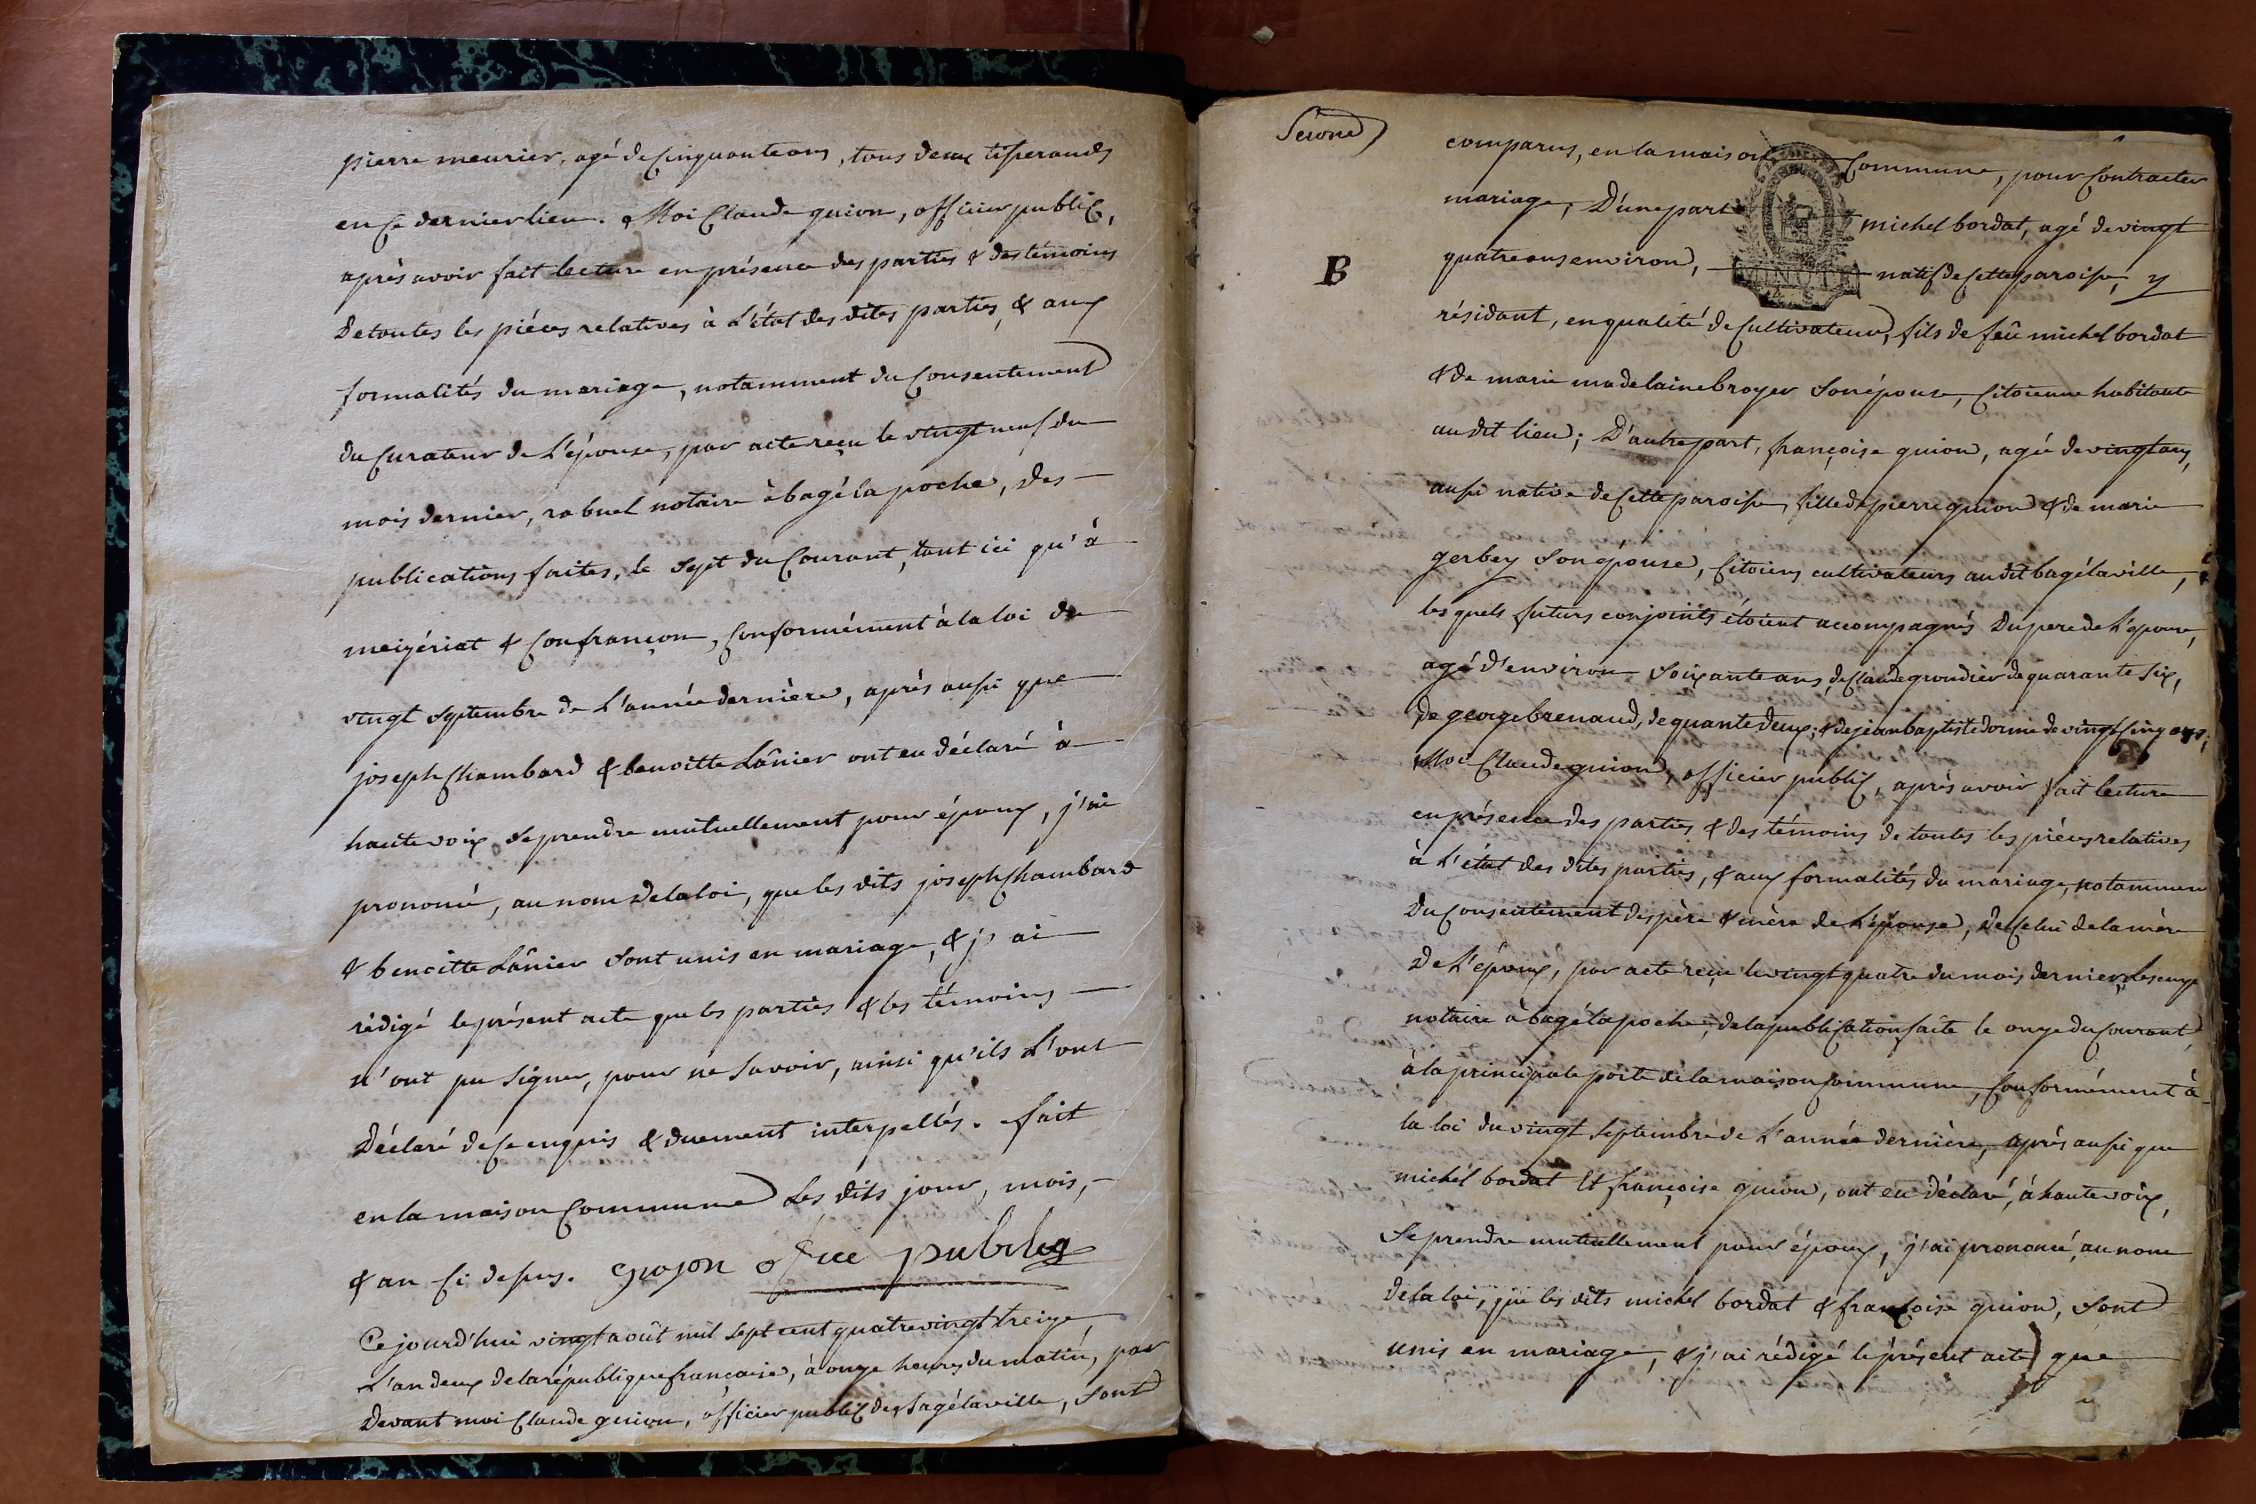 pierre meurier, agé de Cinquante ans, tous deux tisserands
en Ce dernier lieu. Moi Claude guion, officier public,
après avoir fait lecture en présence des parties & des témoins
De toutes les piéces relatives à L'état des dites parties, & aux
formalités du mariage, notamment du Consentement
du Curateur de L'épouse, par acte reçu le vingt neuf du
mois dernier, rabuel notaire à bagé la poche, des
publications faites, le Sept du Courant, tant ici qu'à
meizériat & Confrançon, Conformément à la loi du
vingt Septembre de L'année dernière, après aussi que
joseph Chambard & benoitte Lânier ont eu déclaré à
haute voix Se prendre mutuellement pour époux, j'ai
prononcé, au nom De la loi, que les dits joseph Chambard
& benoitte Lânier Sont unis en mariage, & j'ai
rédigé le présent acte que les parties & les témoins
n'ont pu Signer, pour ne Savoir, ainsi qu'ils L'ont
Déclaré de Ce enquis & duement interpellés. fait
en la maison Commune Les dits jour, mois,
& an Ci dessus. guyon ofice publiq
Ce jourd'hui vingt août mil Sept cent quatre vingt treize,
L'an deux de la république française, à onze heures du matin, par
Devant moi Claude guion, officier public de Bagé la ville, Sont
Second
comparus, en la maison Commune, pour Contracter
mariage, D'une part michel bordat, agé de vingt
quatre ans environ, natif de Cette paroisse, y
MINUTE
4. S.
B
résidant, en qualité de Cultivateur, fils de feû michel bordat
& de marie madelaine broyer Son épouse, Citoienne habitante
au dit lieu; D'autre part, françoise guion, agée de vingt ans,
aussi native de Cette paroisse, fille de pierre guion & de marie
gerbey Son épouse, Citoiens cultivateurs au dit bagé la ville, &
les quels futurs conjoints étoient accompagnés Du pere de L'épouse,
agé d'environ Soixante ans, de Claude grondier de quarante Six,
de george brenaud, de quante deux; & de jean baptiste dorme de vingt Cinq ans;
Moi Claude guion, officier public, après avoir fait lecture
en présence des parties & des témoins de toutes les piéces relatives
à L'état des dites parties, & aux formalités du mariage, notammen
Du Consentement des père & mère de L'épouse, de Celui de la mère
De L'époux, par acte reçu le vingt quatre du mois dernier,
notaire à bagé la poche, de la publication faite le onze du Courant,
à la principale porte de la maison Commune, Conformément à
la loi du vingt Septembre de L'année dernière, après aussi que
michel bordat Et françoise guion, ont eu déclaré, à haute voix,
Se prendre mutuellement pour époux, j'ai prononcé, au nom
De la loi, que les dits michel bordat & françoise guion, Sont
unis en mariage, & j'ai rédigé le présent acte que